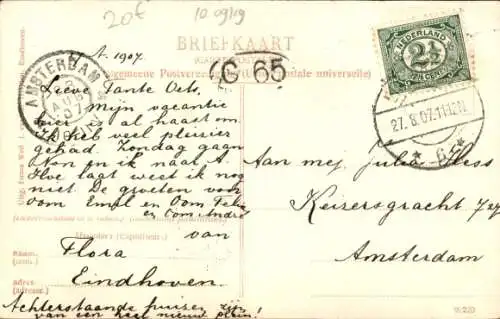 20€
10 09/19
A. 1907.
BRIEFKAART
(CARTE POSTALE)
Algemeene Postvereeniging (Union Postale universelle)
C 65
NEDERLAND
2½
CENT
AMSTERDAM
AUG
07
27.8.07.11-12V
Lieve Tante Oets,
Mijn vacantie
hier is al haast om
Ik heb veel plezier
gehad. Zondag gaan
Non en ik naat A.
Hoe laat weet ik nog
niet De groeten van
oom Emil en Oom Felix
en Oom André
van
Flora
Eindhoven.
Aan mej. Julia
Keizersgracht
Amsterdam
Afzender (Expéditeur)
Naam:
Adres:
(adresse:)
Achterstaande huizen zijn
van een heel nieuw plein!